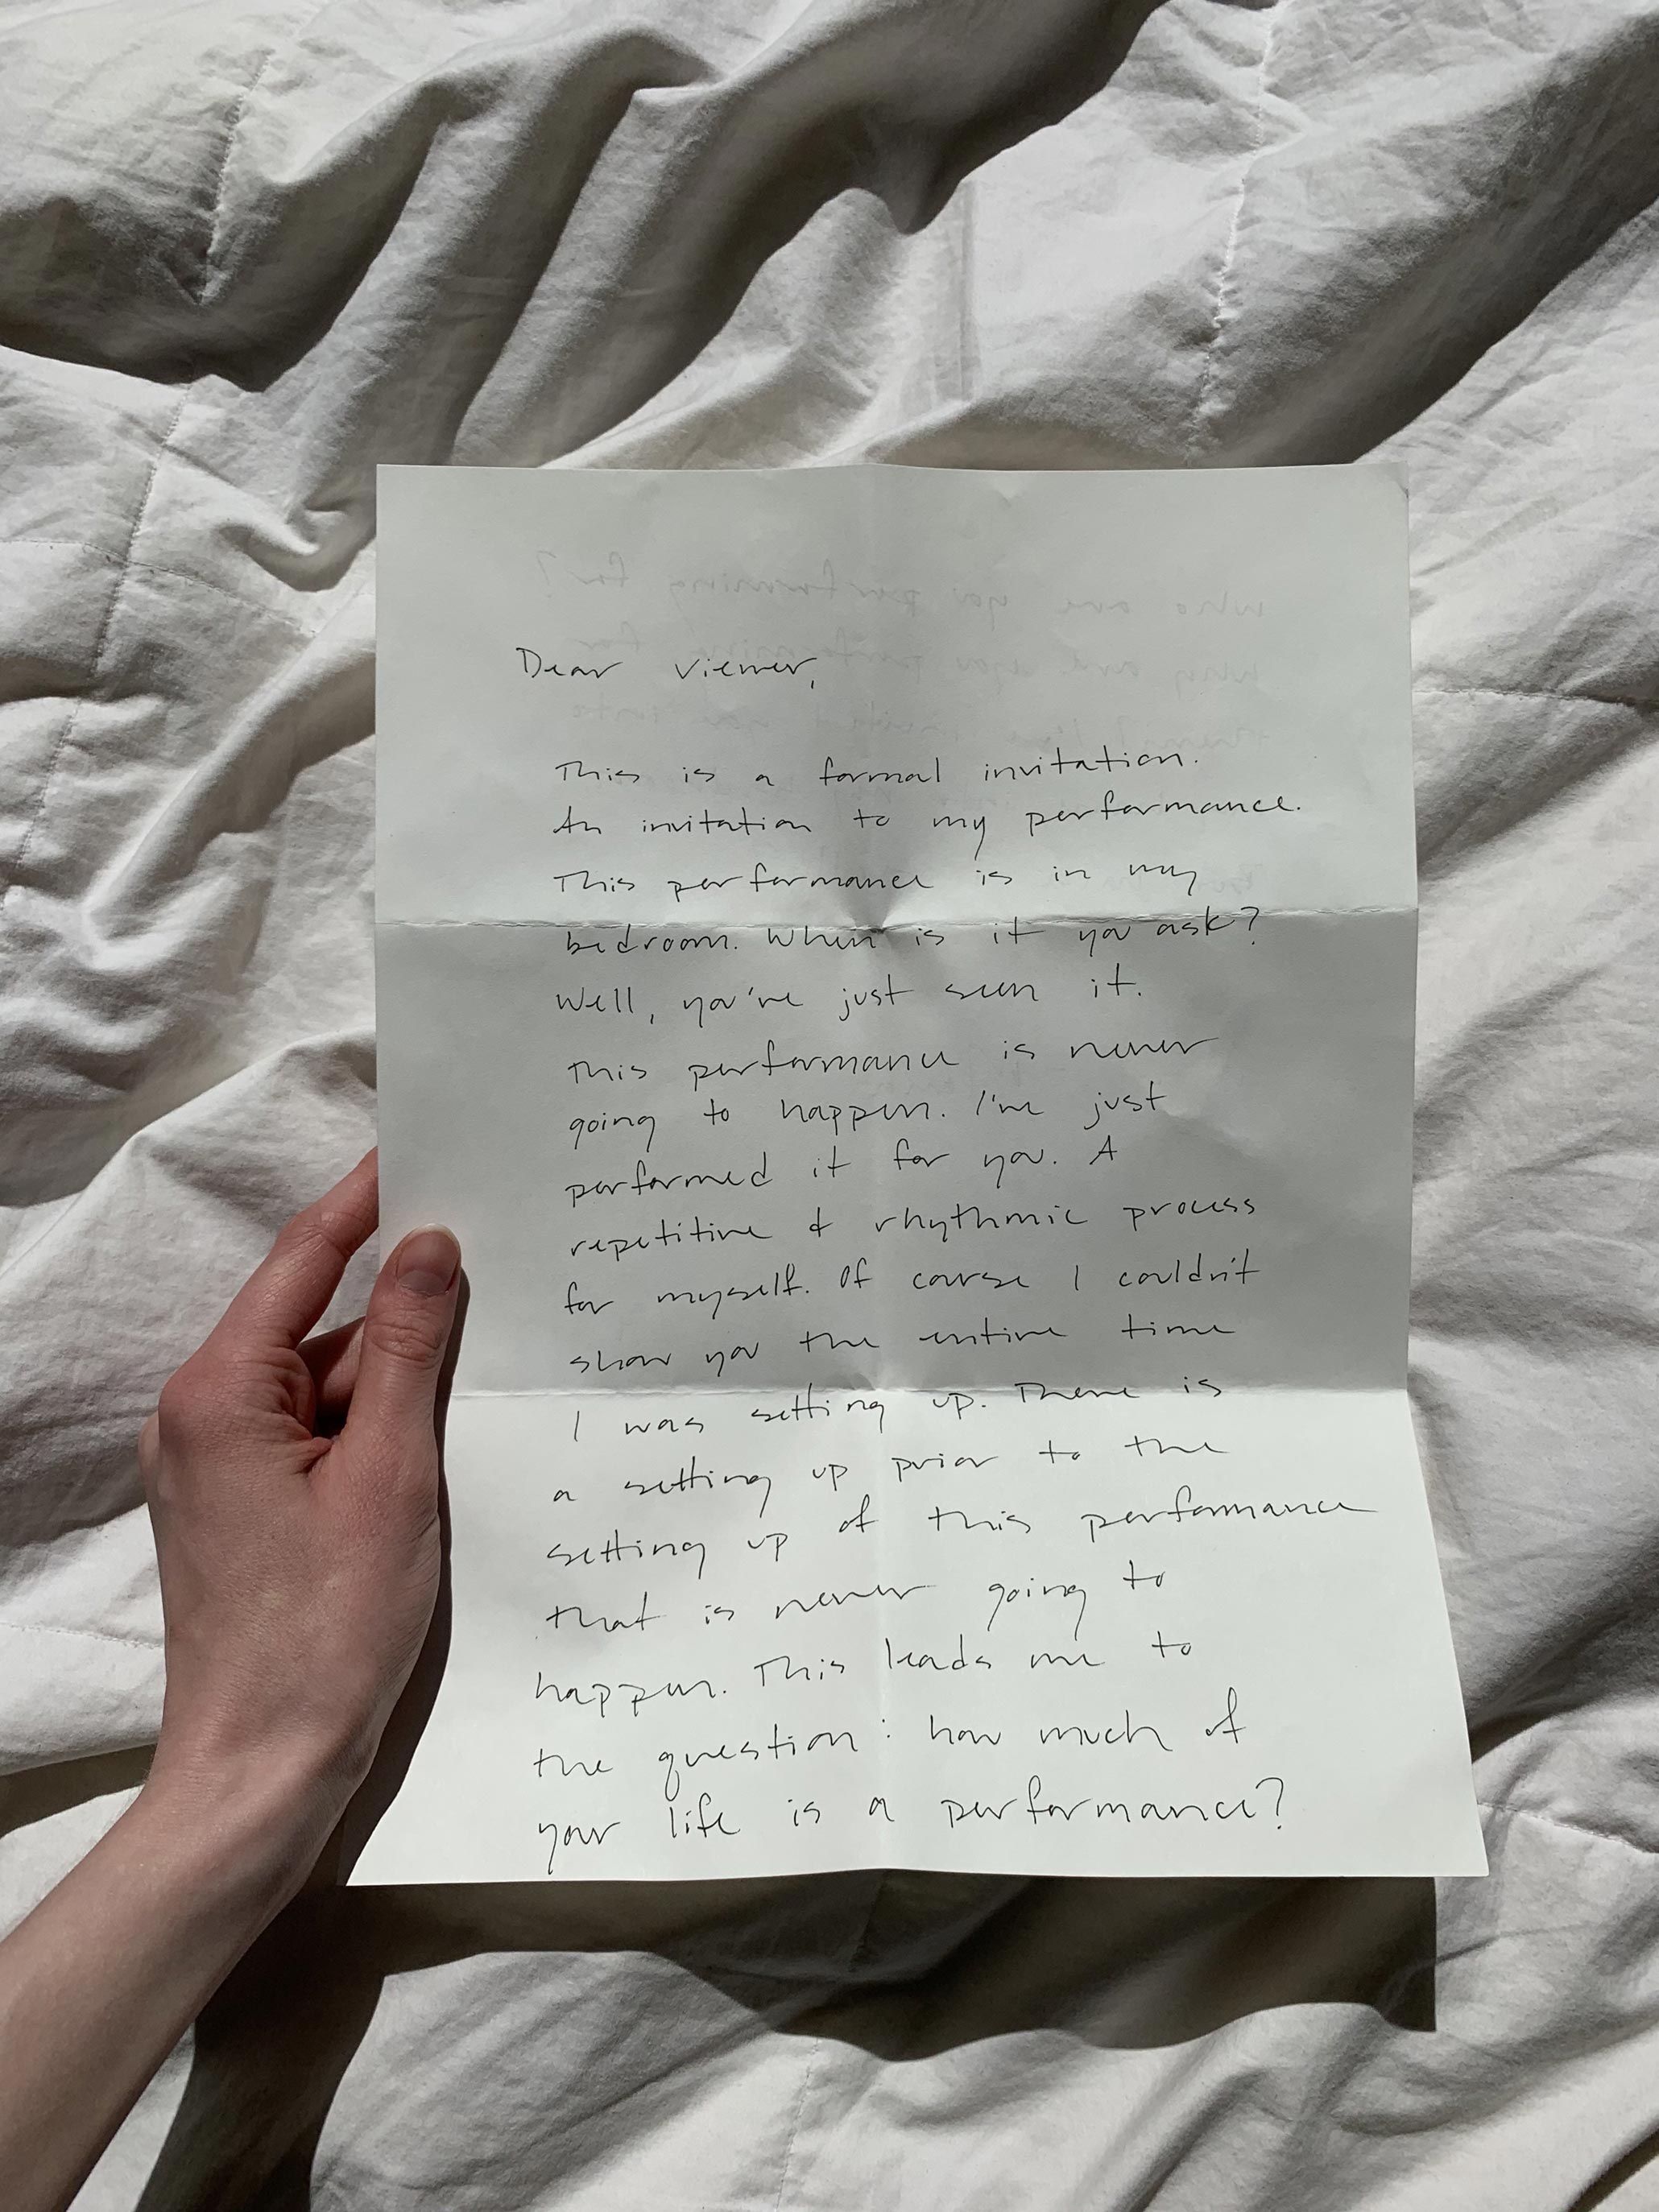 Dear viewer,
This is a formal invitation.
An invitation to my performance.
This performance is in my
bedroom. When is it you ask?
Well, you've just seen it.
This performance is never
going to happen. I've just
performed it for you. A
repetitive & rhythmic process
for myself. Of course I couldn't
show you the entire time
I was setting up. There is
a setting up prior to the
setting up of this performance
that is never going to
happen. This leads me to
the question: how much of
your life is a performance?
who are you performing for?
why are you performing for
them?